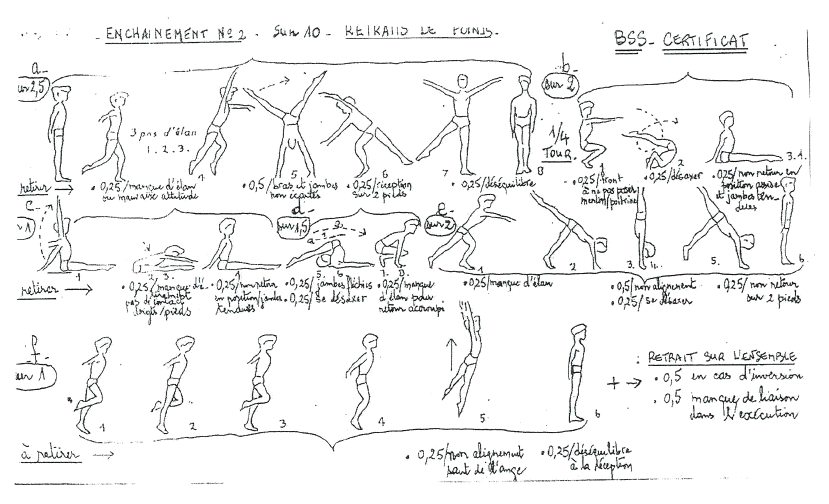 ENCHAINEMENT No 2 . Sur 10 - RETRAITS DE POINTS.
BSS - CERTIFICAT
a -
sur 2,5
b -
sur 2
3 pas d'élan
1. 2. 3.
1/4
TOUR.
4 5 6 7 8 1 2 3.4.
retirer → • 0,25/manque d'élan
ou mauvaise attitude
• 0,5/bras et jambes
non écartés
• 0,25/réception
sur 2 pieds
• 0,25/déséquilibre
• 0,25/front
à ne pas poser
menton/poitrine
• 0,25/désaxer
• 0,25/non retour en
position assise
et jambes ten-
dues
c -
1
d -
sur 1,5
e -
sur 2
1 2. 3. 4 5. 6 7. 8. 1 2 3. 4. 5. 6.
retirer →
• 0,25/manque d'é-
pas de contact
doigts/pieds
• 0,25/non retour
en position/jambes
tendues
• 0,25/jambes fléchies
• 0,25/se désaxer
• 0,25/manque
d'élan pour
retour accroupi
• 0,25/manque d'élan
• 0,5/non alignement
• 0,25/se désaxer
• 0,25/non retour
sur 2 pieds
f -
sur 1
1 2 3 4 5 6
+ → : RETRAIT SUR L'ENSEMBLE
• 0,5 en cas d'inversion
• 0,5 manque de liaison
dans l'exécution
à retirer →
• 0,25/non alignement
saut de l'ange
• 0,25/déséquilibre
à la réception